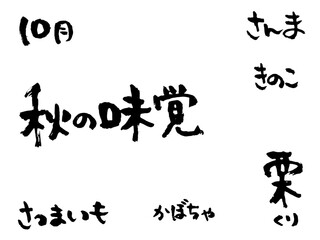 10月
さんま
きのこ
秋の味覚
栗
くり
さつまいも
かぼちゃ